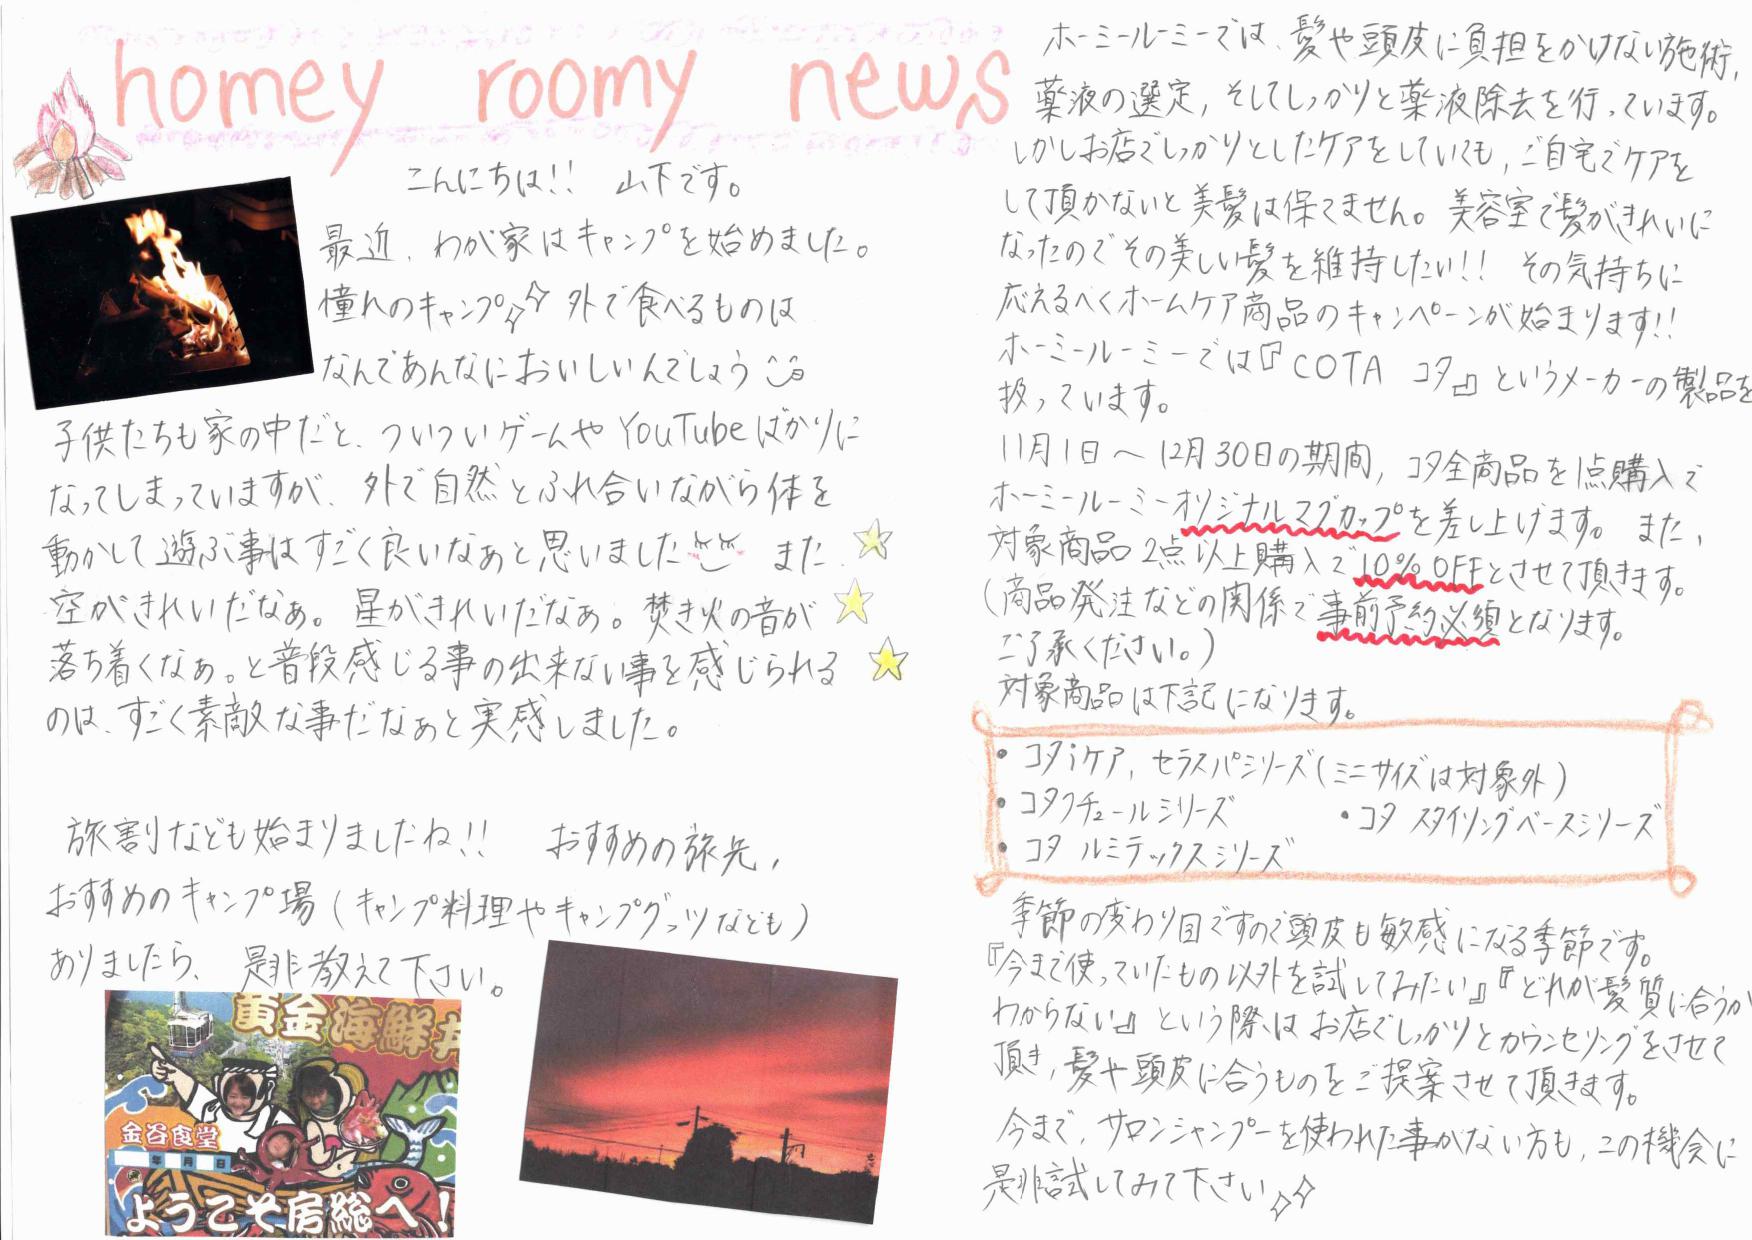 homey roomy news
こんにちは!! 山下です。
最近、わが家はキャンプを始めました。
憧れのキャンプ 外で食べるものは
なんであんなにおいしいんでしょう
子供たちも家の中だと、ついついゲームや YouTubeばかりに
なってしまっていますが、外で自然とふれ合いながら体を
動かして遊ぶ事はすごく良いなぁと思いました また、
空がきれいだなぁ。星がきれいだなぁ。焚き火の音が
落ち着くなぁ。と普段感じる事の出来ない事を感じられる
のは、すごく素敵な事だなぁと実感しました。
旅割なども始まりましたね!! おすすめの旅先,
おすすめのキャンプ場(キャンプ料理やキャンプグッツなども)
ありましたら、是非教えて下さい。
黄金海鮮丼
金谷食堂
年 月 日
ようこそ房総へ!
ホーミールーミーでは、髪や頭皮に負担をかけない施術,
薬液の選定, そしてしっかりと薬液除去を行っています。
しかしお店でしっかりとしたケアをしていても, ご自宅でケアを
して頂かないと美髪は保てません。美容室で髪がきれいに
なったのでその美しい髪を維持したい!! その気持ちに
応えるべくホームケア商品のキャンペーンが始まります!!
ホーミールーミーでは『COTA コタ』というメーカーの製品を
扱っています。
11月1日~12月30日の期間, コタ全商品を1点購入で
ホーミールーミーオリジナルマグカップを差し上げます。また,
対象商品2点以上購入で10%OFFとさせて頂きます。
(商品発注などの関係で事前予約必須となります。
ご了承ください。)
対象商品は下記になります。
・コタiケア, セラスパシリーズ(ミニサイズは対象外)
・コタクチュールシリーズ ・コタ スタイリングベースシリーズ
・コタ ルミテックスシリーズ
季節の変わり目ですので頭皮も敏感になる季節です。
『今まで使っていたもの以外を試してみたい』『どれが髪質に合うか
わからない』という際はお店でしっかりとカウンセリングをさせて
頂き, 髪や頭皮に合うものをご提案させて頂きます。
今まで, サロンシャンプーを使われた事がない方も, この機会に
是非試してみて下さい